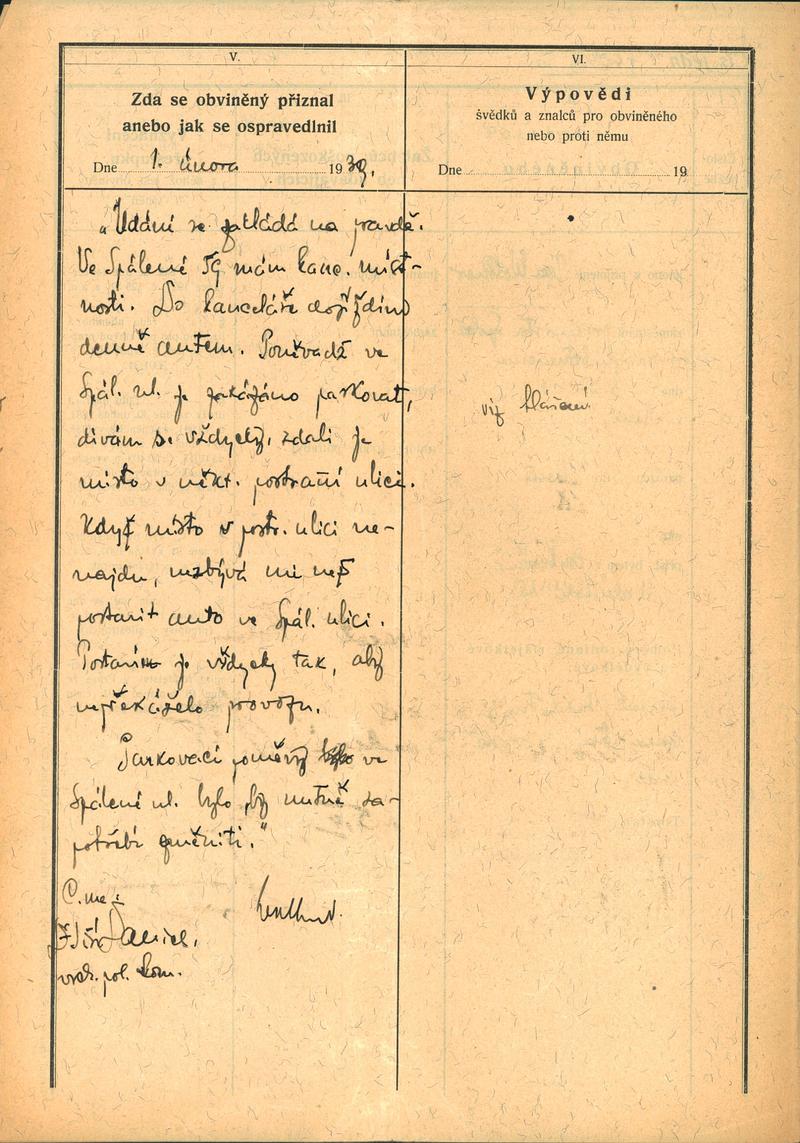 V.
Zda se obviněný přiznal
anebo jak se ospravedlnil
Dne 1. února 1939.
„Udání se zakládá na pravdě.
Ve Spálené 59 mám kanc. míst-
nosti. Do kanceláře dojíždím
denně autem. Poněvadž ve
Spál. ul. je zakázáno parkovat,
dívám se vždycky, zdali je
místo v někt. postranní ulici.
Když místo v postr. ulici ne-
najdu, nezbývá mi než
postavit auto ve Spál. ulici.
Postavím je vždycky tak, aby
nepřekáželo provozu.
Parkovací poměry ve
Spálené ul. bylo by nutně za-
potřebí změniti."
C. me:
Jiří Daniel,
vrch. pol. kom.
VI.
Výpovědi
svědků a znalců pro obviněného
nebo proti němu
Dne 19
viz hlášení